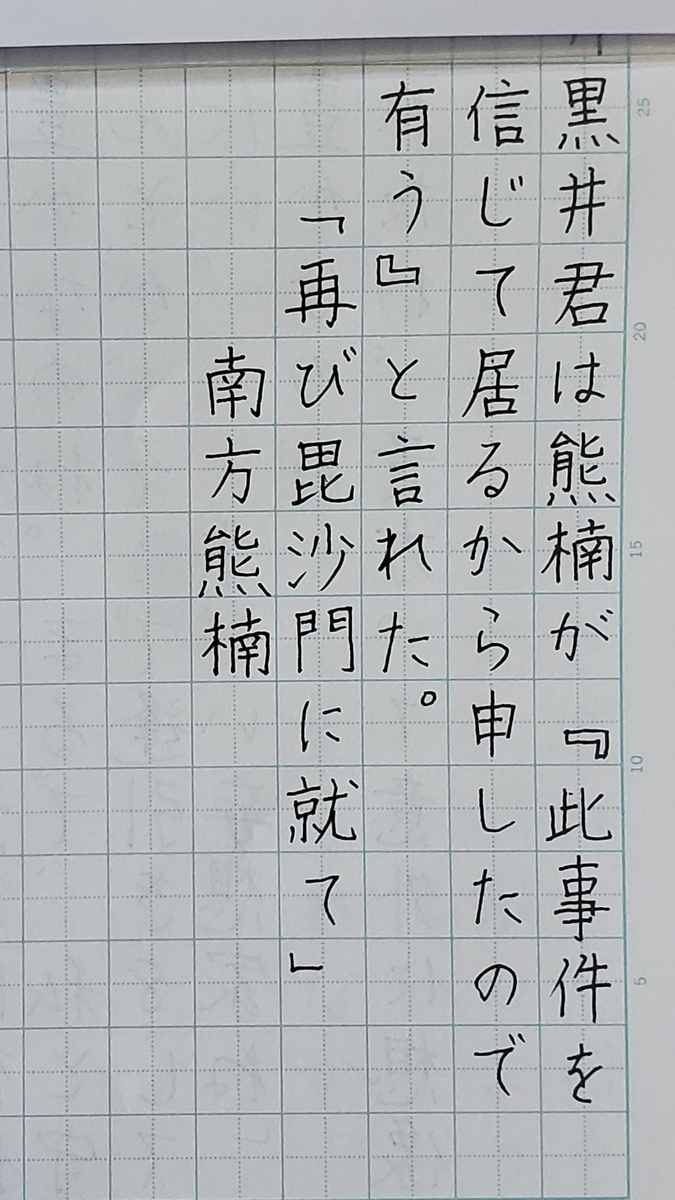 黒井君は熊楠が『此事件を
信じて居るから申したので
有う』と言れた。
「再び毘沙門に就て」
南方熊楠
25
20
15
10
5